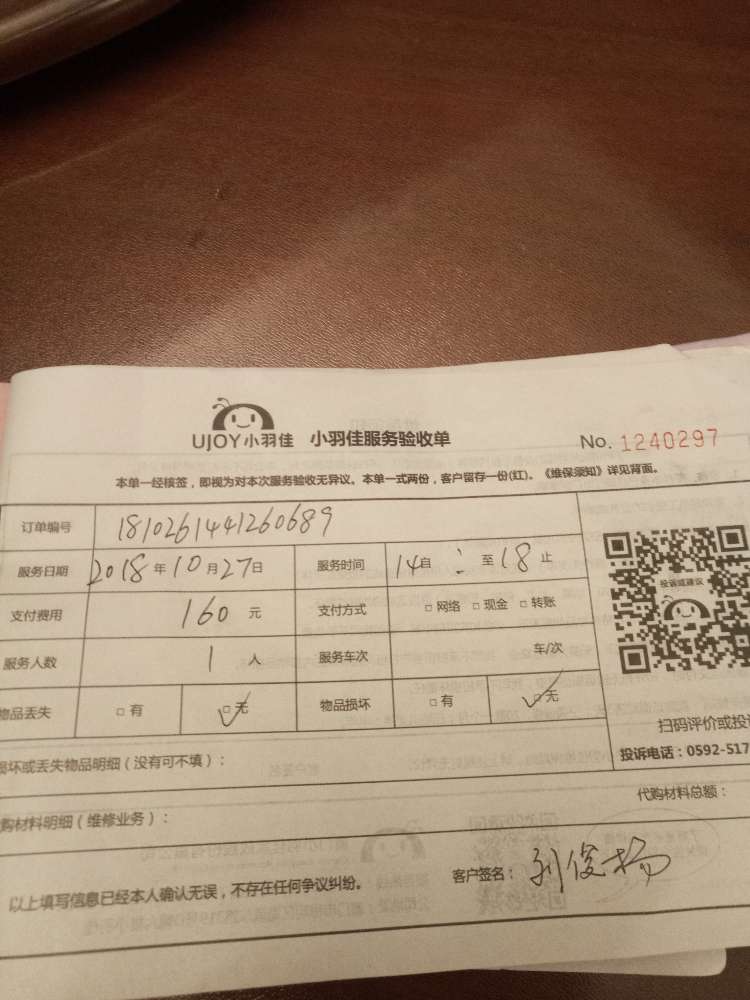 UJOY小羽佳 小羽佳服务验收单 No. 1240297
本单一经核签，即视为对本次服务验收无异议。本单一式两份，客户留存一份(红)。《维保须知》详见背面。
订单编号 1810261441260689
服务日期 2018年10月27日 服务时间 14自 : 至18止
支付费用 160元 支付方式 □网络 □现金 □转账
服务人数 1人 服务车次 车/次
物品丢失 □有 □无 物品损坏 □有 □无
投诉或建议
扫码评价或投
投诉电话：0592-517
损坏或丢失物品明细（没有可不填）：
购材料明细（维修业务）： 代购材料总额：
以上填写信息已经本人确认无误，不存在任何争议纠纷。 客户签名：刘俊杨